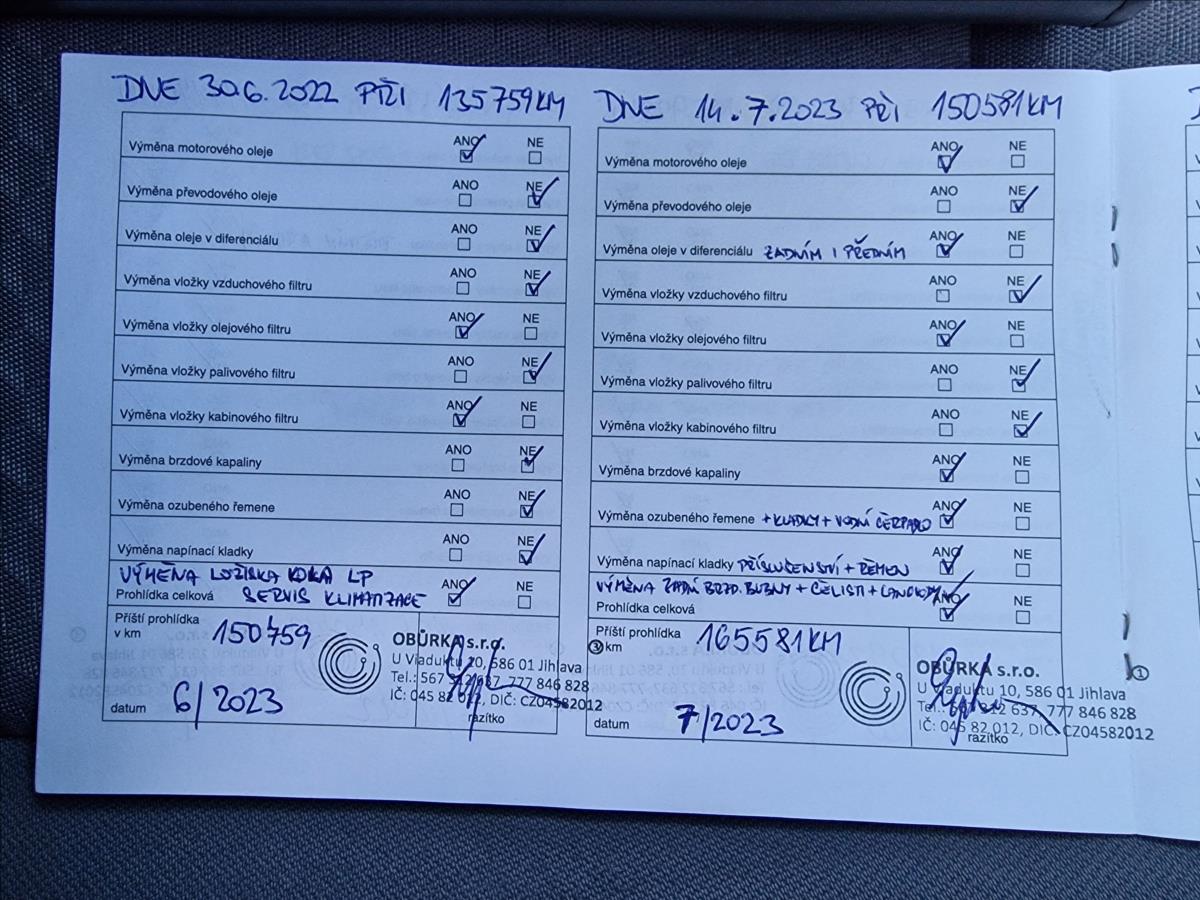 DNE 30.6.2022 PŘI 135759KM
Výměna motorového oleje ANO NE
Výměna převodového oleje ANO NE
Výměna oleje v diferenciálu ANO NE
Výměna vložky vzduchového filtru ANO NE
Výměna vložky olejového filtru ANO NE
Výměna vložky palivového filtru ANO NE
Výměna vložky kabinového filtru ANO NE
Výměna brzdové kapaliny ANO NE
Výměna ozubeného řemene ANO NE
Výměna napínací kladky ANO NE
VÝMĚNA LOŽISKA KOLA LP
Prohlídka celková SERVIS KLIMATIZACE ANO NE
Příští prohlídka
v km 150759
datum 6/2023
OBŮRKA s.r.o.
U Viaduktu 20, 586 01 Jihlava
Tel.: 567 312 637, 777 846 828
IČ: 045 82 012, DIČ: CZ04582012
razítko
DNE 14.7.2023 PŘI 150581KM
Výměna motorového oleje ANO NE
Výměna převodového oleje ANO NE
Výměna oleje v diferenciálu ZADNÍM I PŘEDNÍM ANO NE
Výměna vložky vzduchového filtru ANO NE
Výměna vložky olejového filtru ANO NE
Výměna vložky palivového filtru ANO NE
Výměna vložky kabinového filtru ANO NE
Výměna brzdové kapaliny ANO NE
Výměna ozubeného řemene +KLADKY+VODNÍ ČERPADLO ANO NE
Výměna napínací kladky PŘÍSLUŠENSTVÍ + ŘEMEN ANO NE
VÝMĚNA ZADNÍ BRZD. BUBNY + ČELISTI + LANOVODY
Prohlídka celková ANO NE
Příští prohlídka
km 165581KM
datum 7/2023
OBŮRKA s.r.o.
U Viaduktu 10, 586 01 Jihlava
Tel.: 567 312 637, 777 846 828
IČ: 045 82 012, DIČ: CZ04582012
razítko